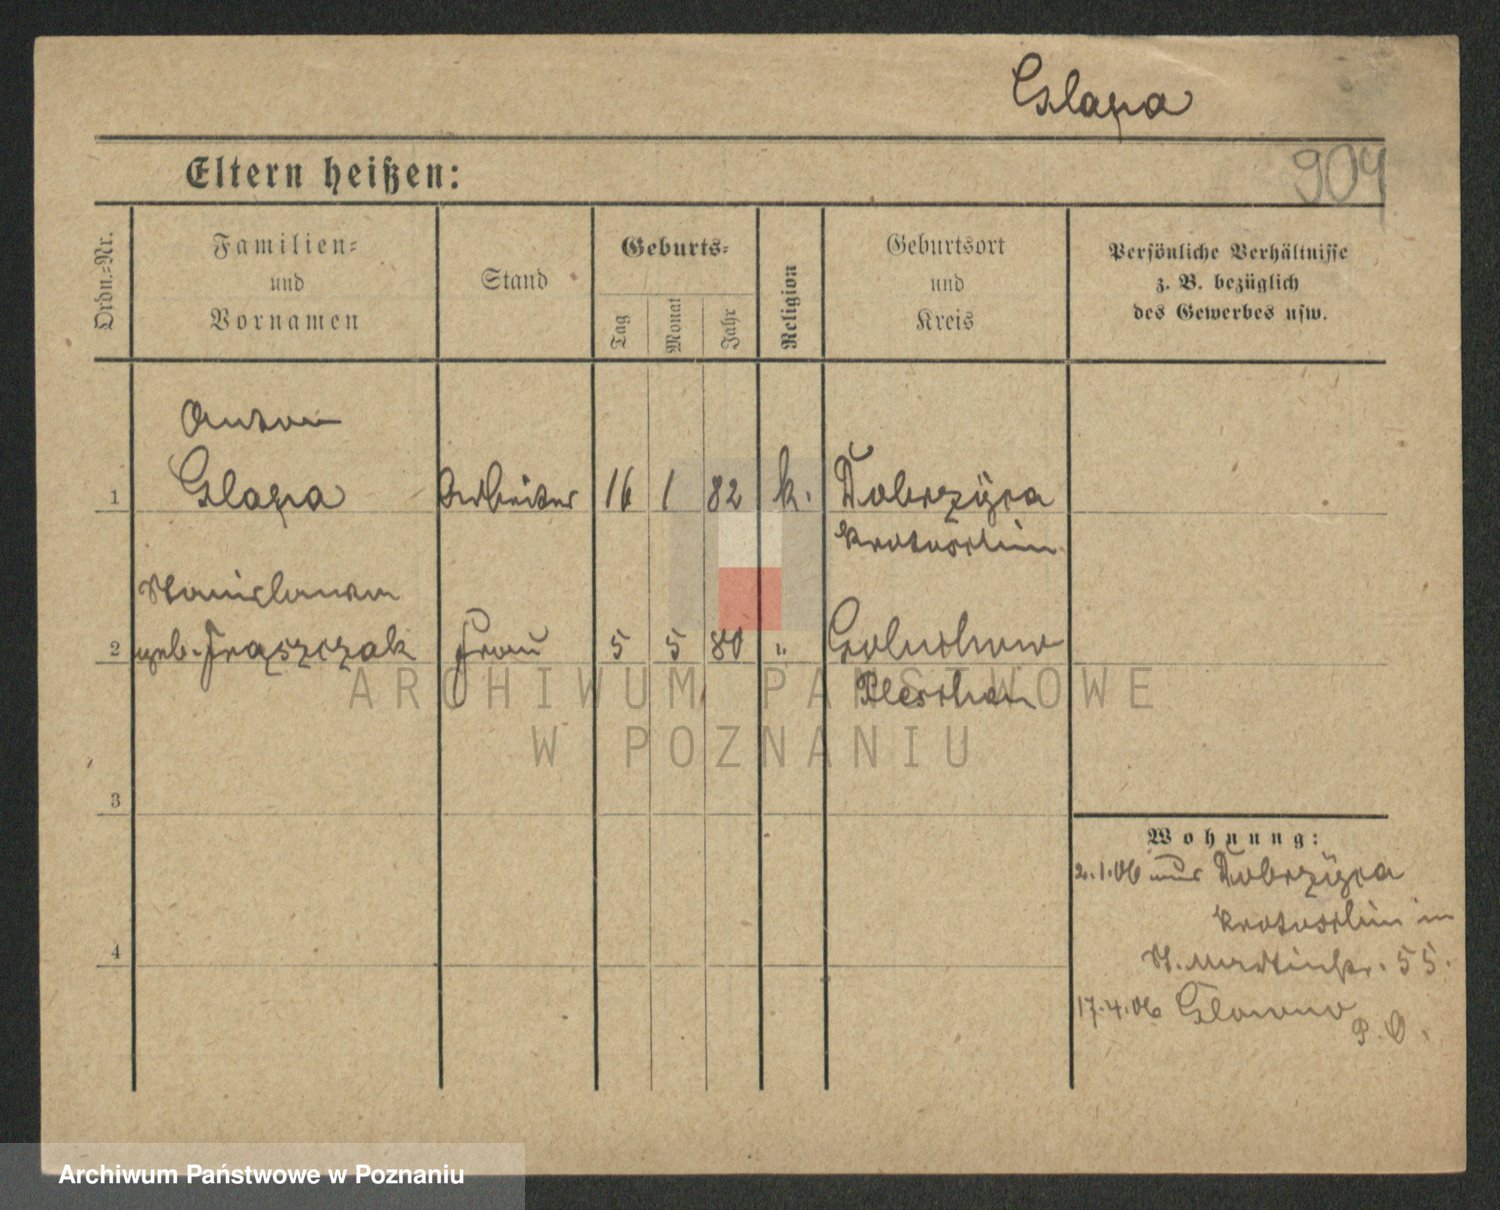 Glapa
Eltern heißen:
904
Ordn.=Nr.
Familien=
und
Vornamen
Stand
Geburts=
Tag
Monat
Jahr
Religion
Geburtsort
und
Kreis
Persönliche Verhältnisse
z. B. bezüglich
des Gewerbes usw.
Anton
1 Glapa Arbeiter 16 1 82 k. Dobrzyca
Krotoschin
Stanislawa
2 geb. Fraszczak Frau 5 5 80 " Goluchow
Pleschen
ARCHIWUM PAŃSTWOWE
W POZNANIU
3
Wohnung:
2.1.06 aus Dobrzyca
Krotoschin in
St. Martinstr. 55.
4
17.4.06 Glowno
P. O.
Archiwum Państwowe w Poznaniu